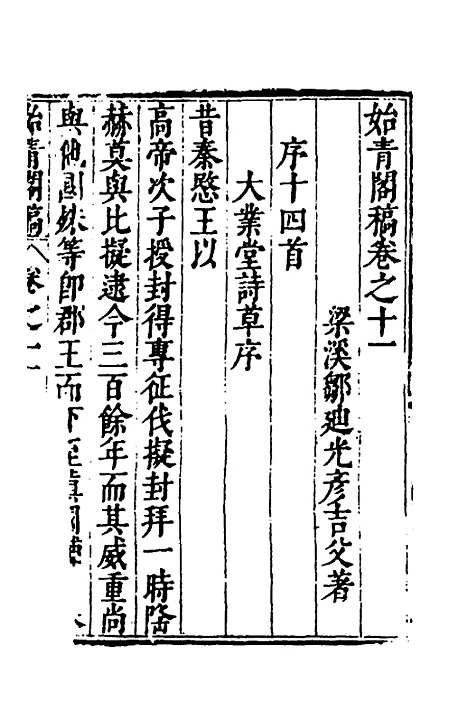 始青閣稿卷之十一
梁溪鄒迪光彥吉父著
序十四首
大業堂詩草序
昔秦愍王以
高帝次子授封得專征伐擬封拜一時隆
赫莫與比擬逮今三百餘年而其威重尚
與他國殊等即郡王而下至鎮國
始青閣稿 卷之十一